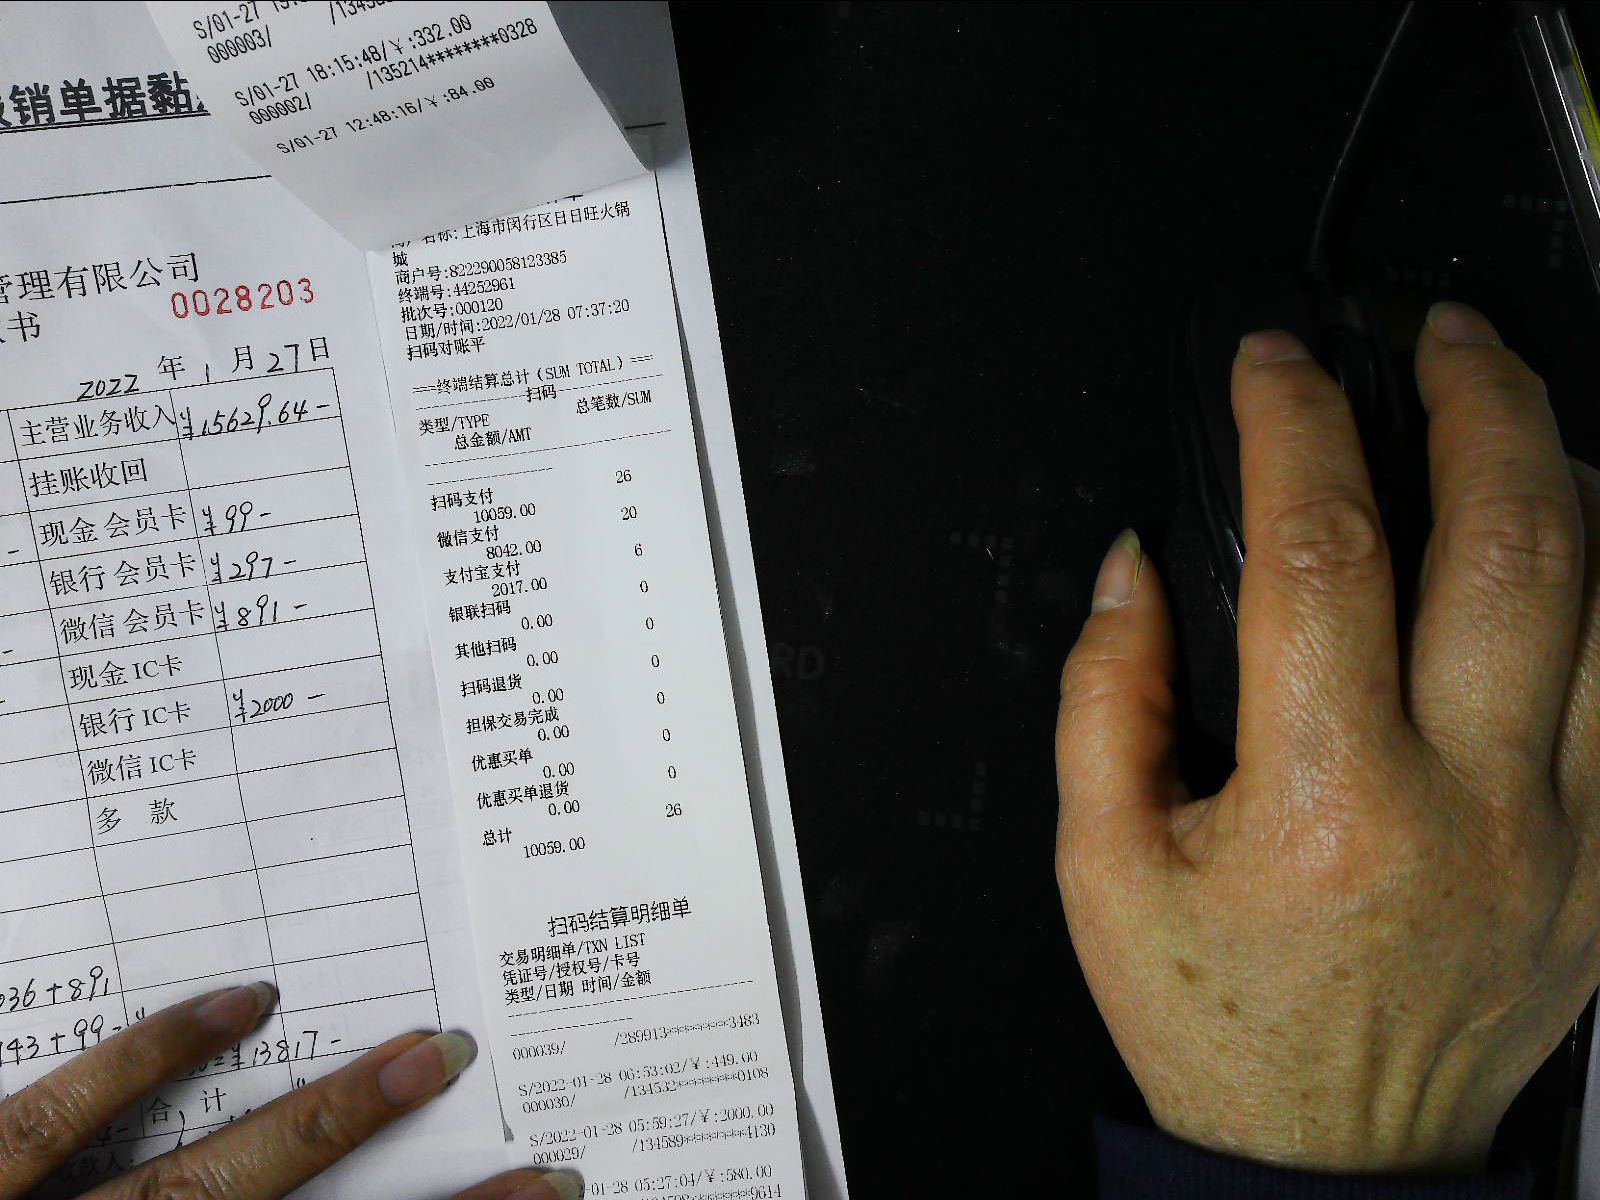 S/01-27
000003/
S/01-27 18:15:48/¥:332.00
000002/ /135214********0328
S/01-27 12:48:16/¥:84.00
销单据黏
管理有限公司
0028203
书
2022 年 1 月 27 日
主营业务收入 ¥15629.64-
挂账收回
现金 会员卡 ¥99-
银行 会员卡 ¥297-
微信 会员卡 ¥891-
现金 IC卡
银行 IC卡 ¥2000-
微信 IC卡
多 款
036+891
143+99-
¥13817-
合 计
名称:上海市闵行区日日旺火锅
城
商户号:822290058123385
终端号:44252961
批次号:000120
日期/时间:2022/01/28 07:37:20
扫码对账平
===终端结算总计(SUM TOTAL)===
扫码
类型/TYPE 总笔数/SUM
总金额/AMT
扫码支付 26
10059.00
微信支付 20
8042.00
支付宝支付 6
2017.00
银联扫码 0
0.00
其他扫码 0
0.00
扫码退货 0
0.00
担保交易完成 0
0.00
优惠买单 0
0.00
优惠买单退货 0
0.00
总计 26
10059.00
扫码结算明细单
交易明细单/TXN LIST
凭证号/授权号/卡号
类型/日期 时间/金额
000039/ /289913********3483
S/2022-01-28 06:53:02/¥:449.00
000030/ /134532********0108
S/2022-01-28 05:59:27/¥:2000.00
000029/ /134589********4130
-01-28 05:27:04/¥:580.00
********9614